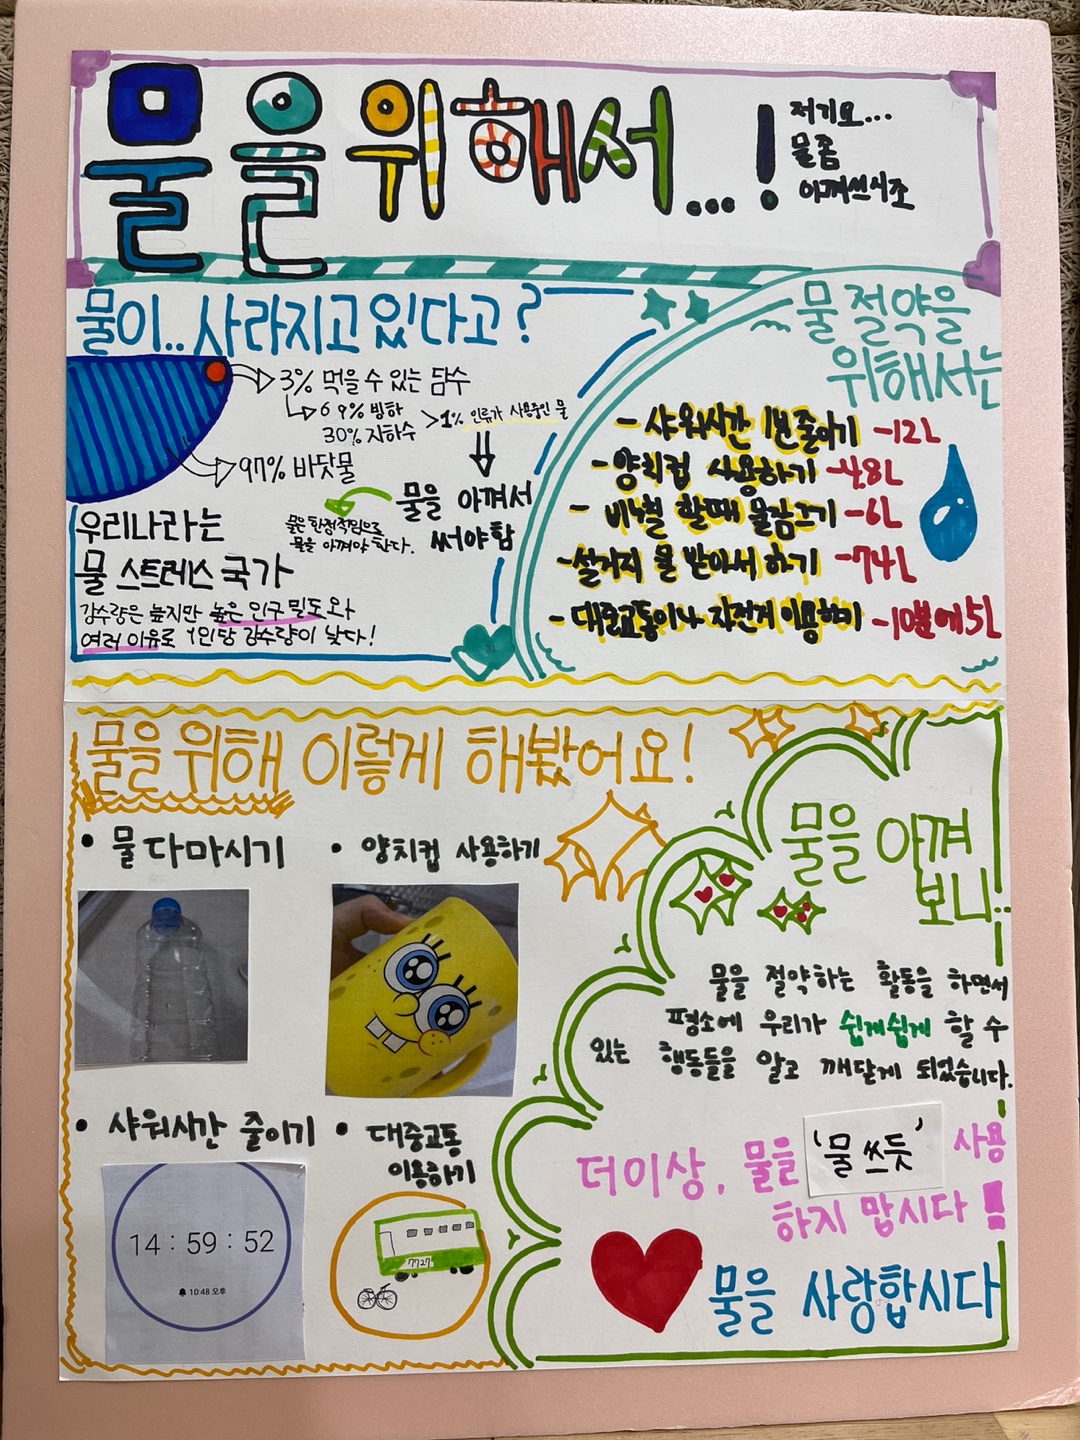 물을위해서...!
저기요...
물좀
아껴쓰시죠
물이..사라지고있다고?
3% 먹을 수 있는 담수
69% 빙하
30% 지하수
>1% 인류가 사용중인 물
97% 바닷물
물을 아껴서
써야함
물은 한정적임으로
물을 아껴야 한다.
우리나라는
물 스트레스 국가
강수량은 높지만 높은 인구 밀도와
여러 이유로 1인당 강수량이 낮다!
물 절약을
위해서는
- 샤워시간 1분 줄이기 -12L
- 양치컵 사용하기 -4.8L
- 비누칠 할때 물잠그기 -6L
- 설거지 물 받아서 하기 -74L
- 대중교통이나 자전거 이용하기 -10분에 5L
물을 위해 이렇게 해봤어요!
• 물 다마시기
• 양치컵 사용하기
• 샤워시간 줄이기
14 : 59 : 52
10:48 오후
• 대중교통
이용하기
7727
물을 아껴
보니..
물을 절약하는 활동을 하면서
평소에 우리가 쉽게쉽게 할 수
있는 행동들을 알고 깨닫게 되었습니다.
더이상, 물을 '물 쓰듯' 사용
하지 맙시다!
물을 사랑합시다